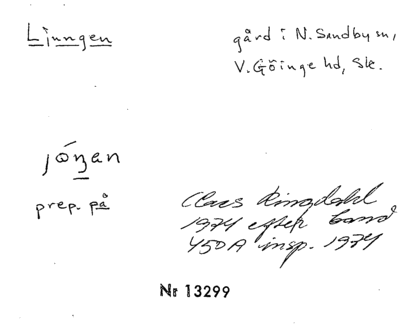 Ljungen
gård i N. Sandby sn,
V. Göinge hd, Sk.
jóŋan
prep. på
Claes Ringdahl
1974 efter band
450A insp. 1974
Nr 13299